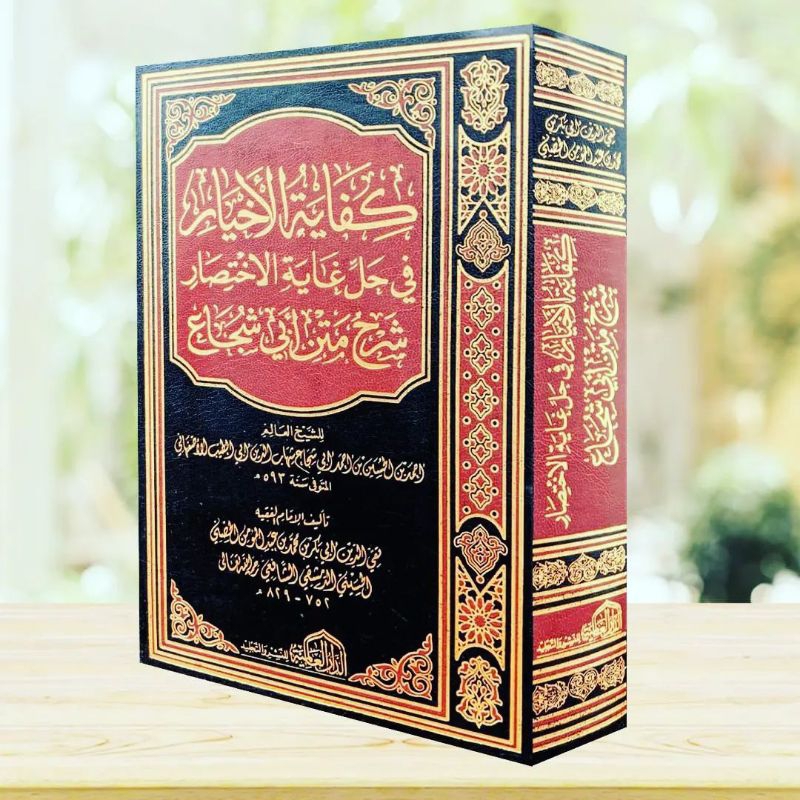 كِفَايَةُ الأَخْيَار
فِي حَلِّ غَايَةِ الاخْتِصَار
شَرْحُ مَتْنِ أَبِي شُجَاع
للشيخ العالم
احمد بن الحسين بن احمد ابي شجاع شهاب الدين ابي الطيب الأصفهاني
المتوفى سنة ٥٩٣ هـ
تأليف الإمام الفقيه
تقي الدين ابي بكر بن محمد بن عبد المؤمن الحصني
الحسيني الدمشقي الشافعي
٧٥٢ - ٨٢٩ هـ
الدار العالمية للنشر والتجليد
تقي الدين ابي بكر بن
محمد بن عبد المؤمن الحصني
كفاية الأخيار في حل غاية الاختصار
شرح متن أبي شجاع
الدار العالمية للنشر والتجليد